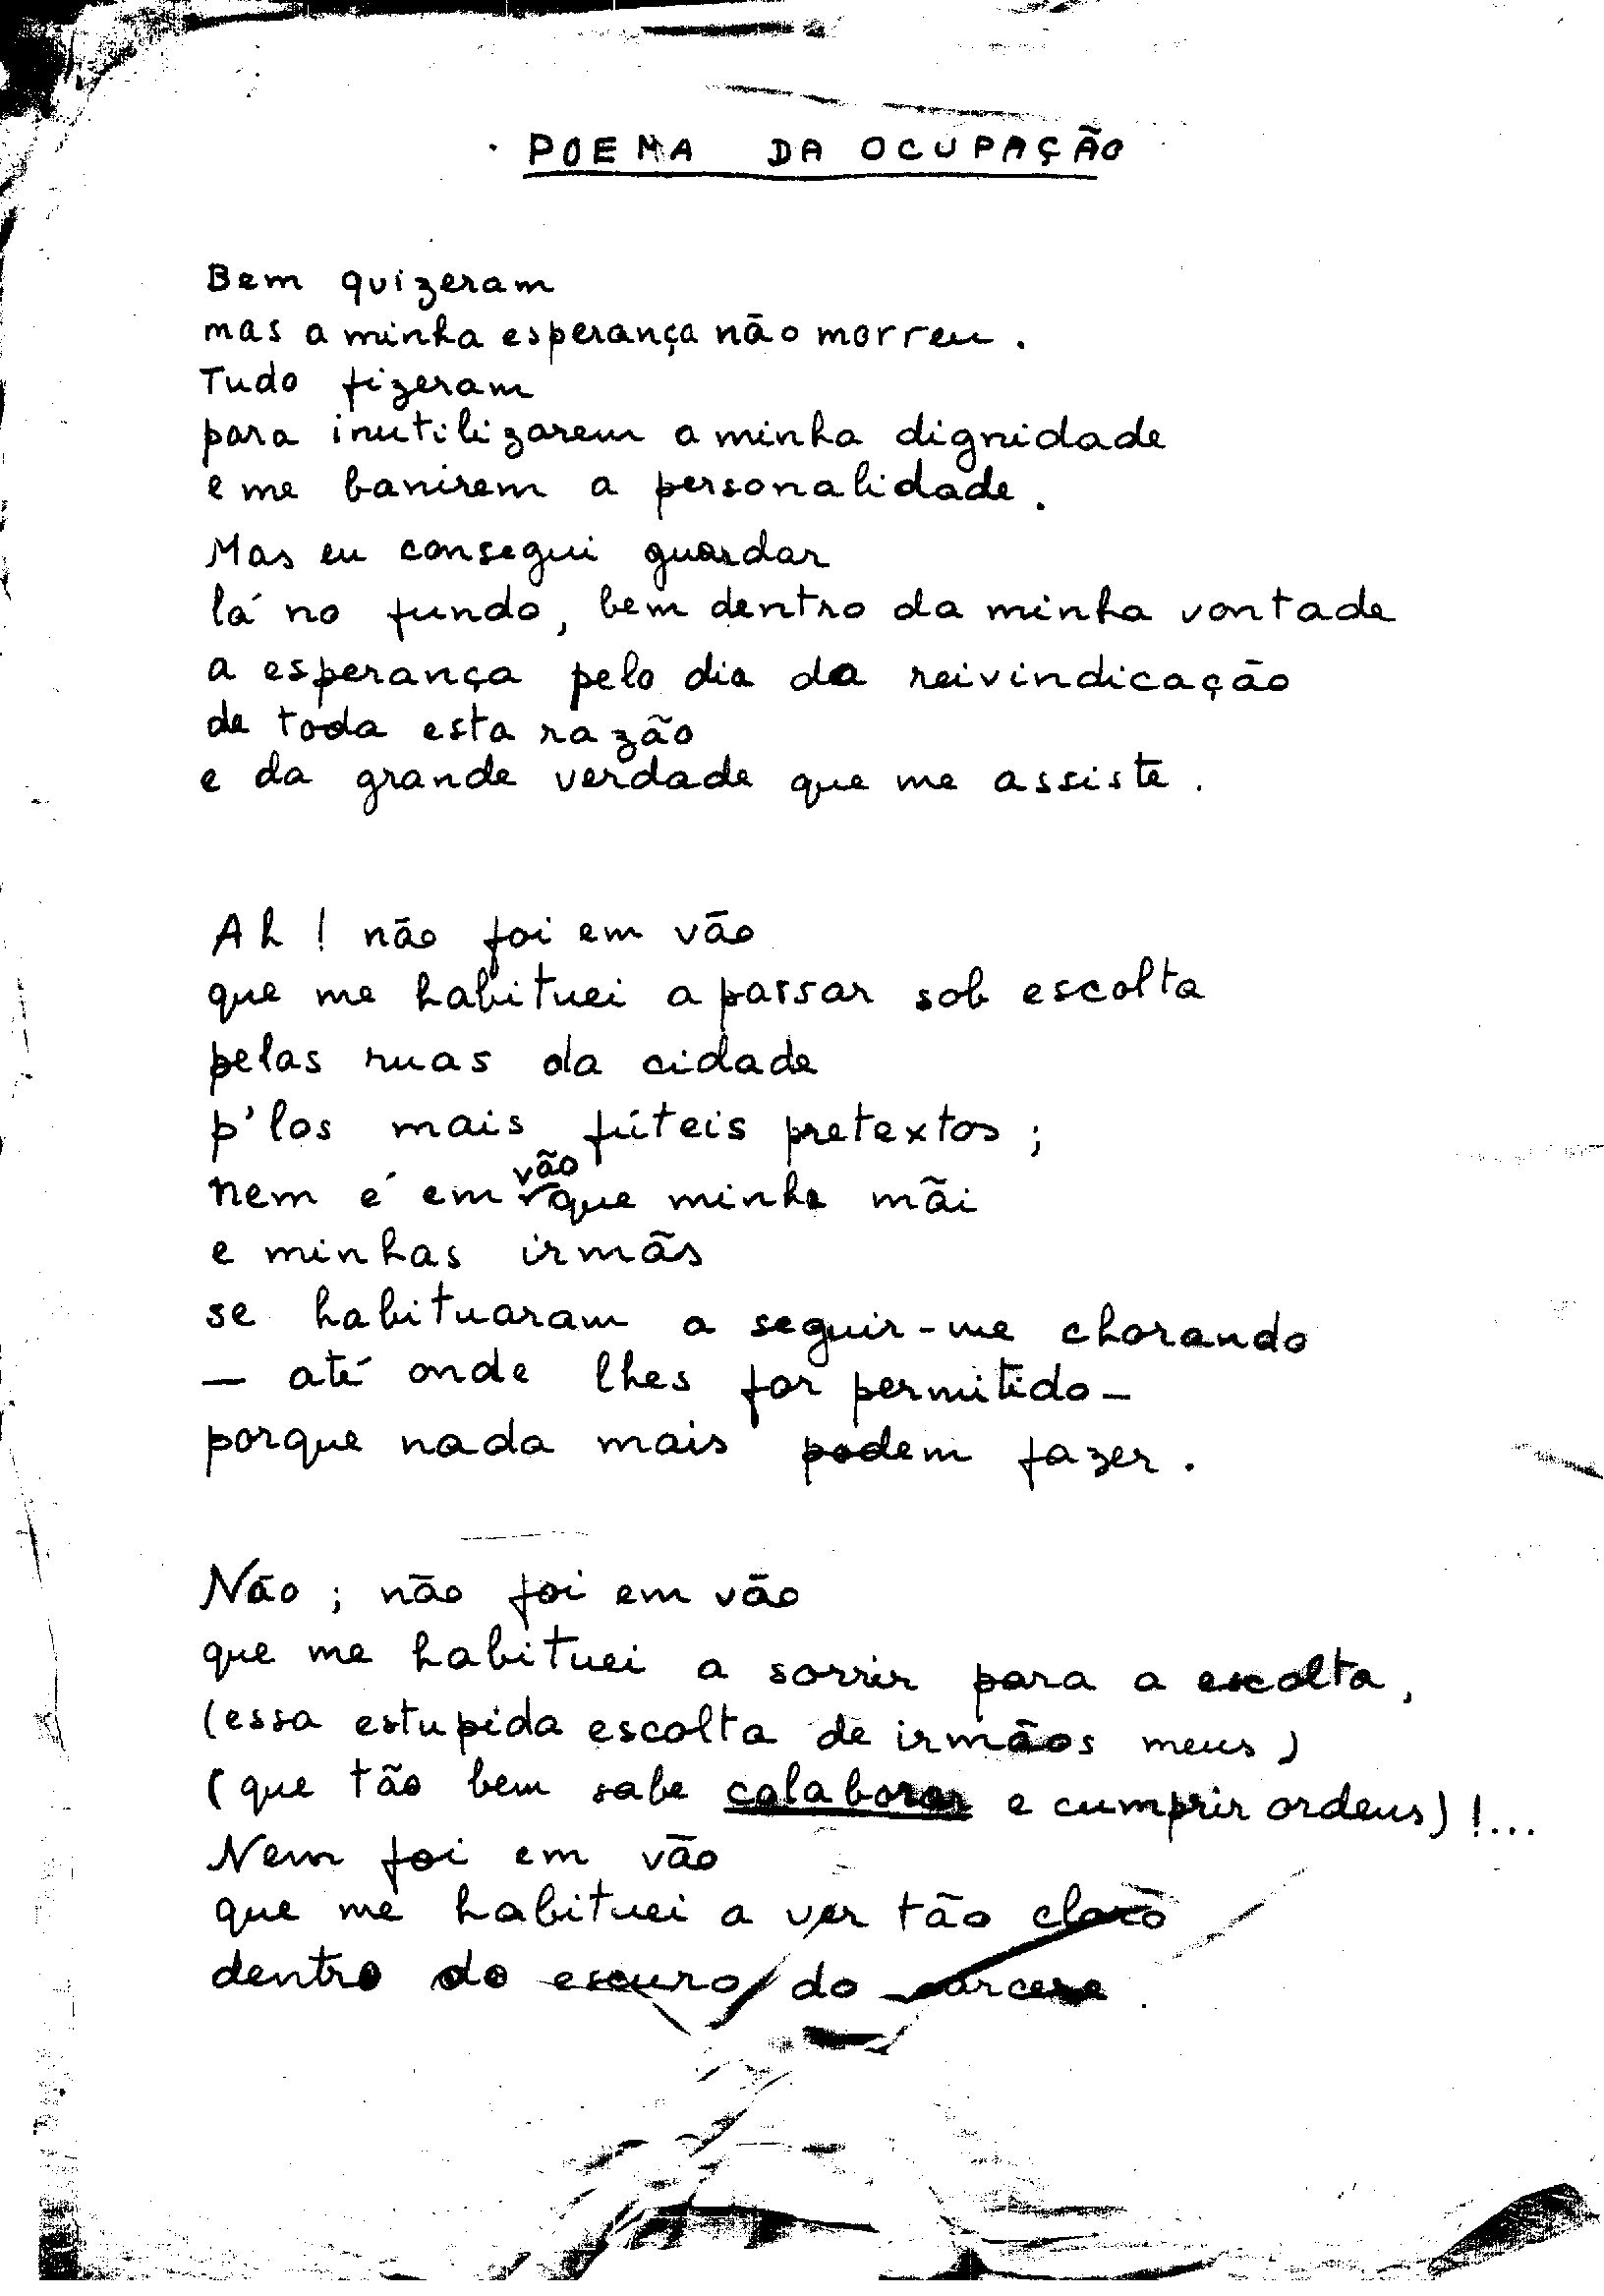 POEMA DA OCUPAÇÃO
Bem quizeram
mas a minha esperança não morreu.
Tudo fizeram
para inutilizarem a minha dignidade
e me banirem a personalidade.
Mas eu consegui guardar
lá no fundo, bem dentro da minha vontade
a esperança pelo dia da reivindicação
de toda esta razão
e da grande verdade que me assiste.
Ah! não foi em vão
que me habituei a passar sob escolta
pelas ruas da cidade
p'los mais fúteis pretextos;
nem é em vão que minha mãi
e minhas irmãs
se habituaram a seguir-me chorando
— até onde lhes for permitido —
porque nada mais podem fazer.
Não; não foi em vão
que me habituei a sorrir para a escolta,
(essa estupida escolta de irmãos meus)
(que tão bem sabe colaborar e cumprir ordens)!...
Nem foi em vão
que me habituei a ver tão claro
dentro do escuro do carcere.